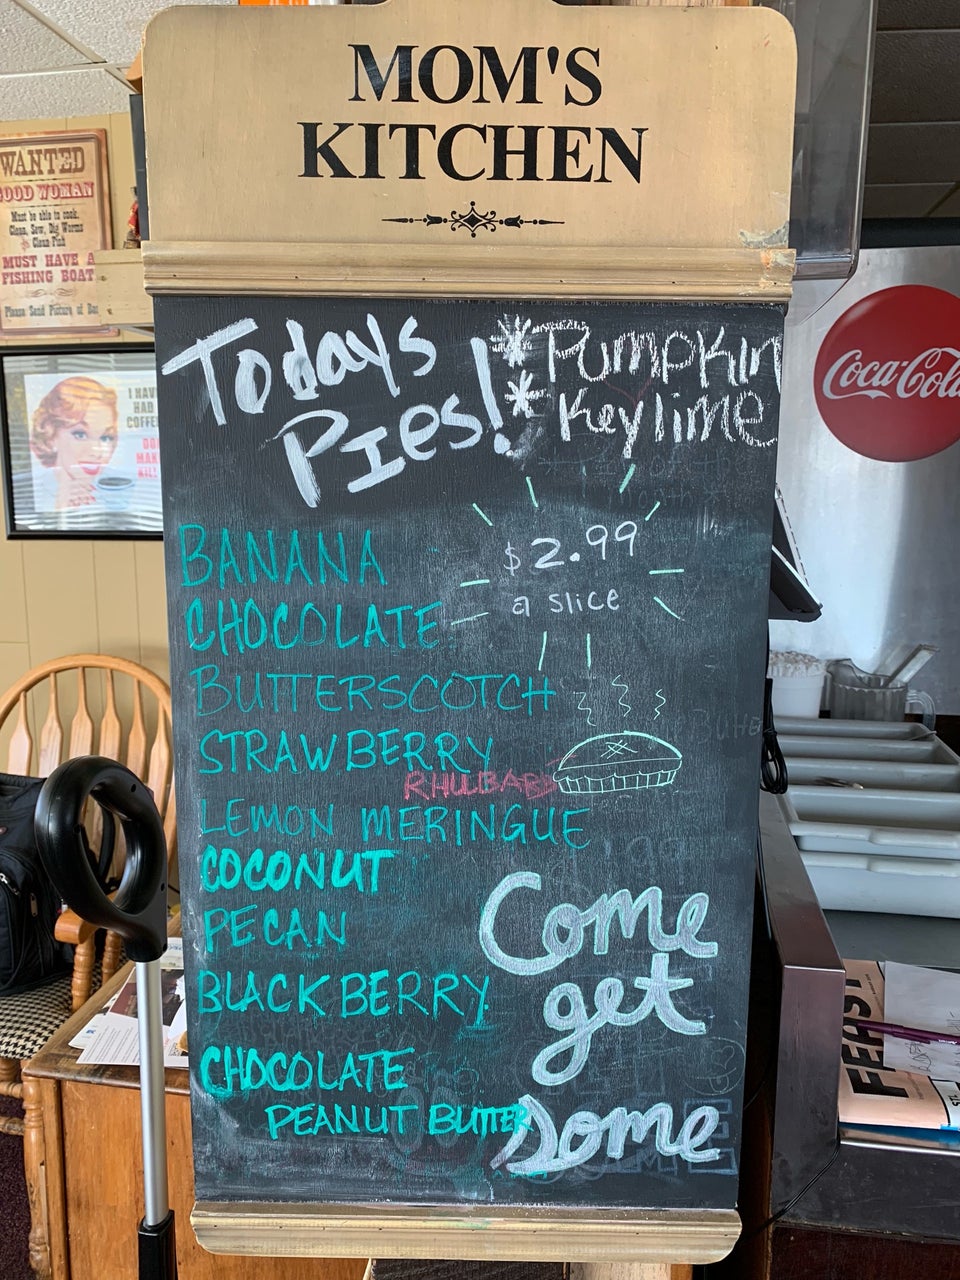 MOM'S
KITCHEN
Todays
Pies!
* Pumpkin
* Key lime
$2.99
a slice
BANANA
CHOCOLATE
BUTTERSCOTCH
STRAWBERRY
RHUBARB
LEMON MERINGUE
COCONUT
PECAN
BLACKBERRY
CHOCOLATE
PEANUT BUTTER
Come
get
some
WANTED
GOOD WOMAN
Must be able to cook,
Clean, Sew, Dig Worms
& Clean Fish
MUST HAVE A
FISHING BOAT
Please Send Picture of
I HAVE
HAD
COFFEE
Coca-Cola
FEAST